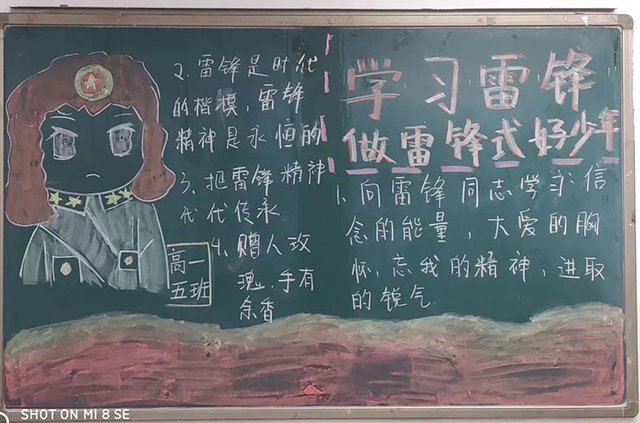 学习雷锋
做雷锋式好少年
1、向雷锋同志学习：信
念的能量，大爱的胸
怀、忘我的精神、进取
的锐气
2、雷锋是时代
的楷模，雷锋
精神是永恒的
3、把雷锋精神
代代传承
4、赠人玫
瑰、手有
余香
高一
五班
SHOT ON MI 8 SE